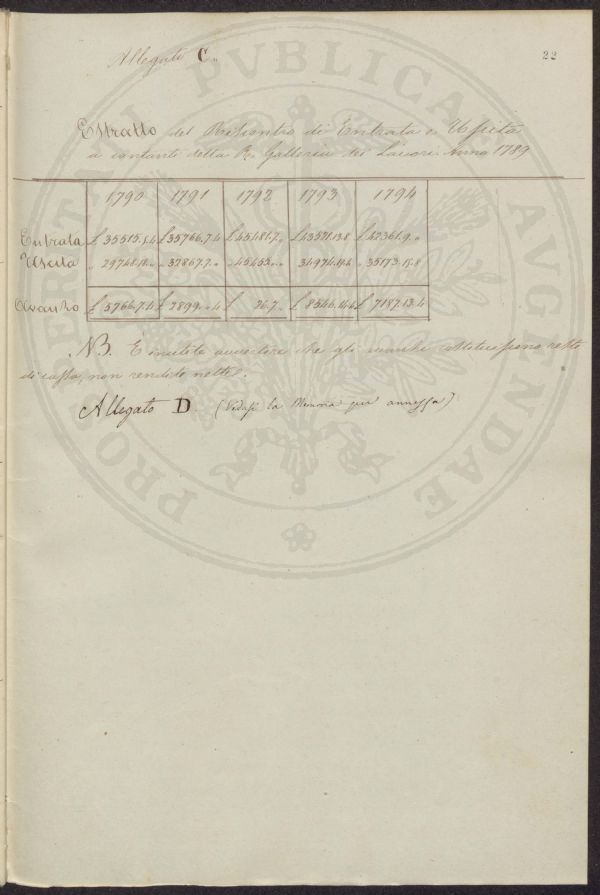 Allegato C.
22
Estratto del Riscontro di Entrata e Uscita
a contanti della R. Galleria dei Lavori Anno 1789
1790 1791 1792 1793 1794
Entrata £ 35515.5.4 £ 35766.7.4 £ 45481.7. £ 43521.13.8 £ 42361.9.
Uscita 29748.18. 32867.7. 45455. 34974.19.4 35173.15.8
Avanzo £ 5766.7.4 £ 2899. .4 £ 26.7. £ 8546.14.4 £ 7187.13.4
NB. È inutile avvertire che gli avanzi costituissono resto
di cassa, non rendite nette.
Allegato D. (Vedasi la Memoria qui annessa)
PRO VERITATE PVBLICA AVGENDAE